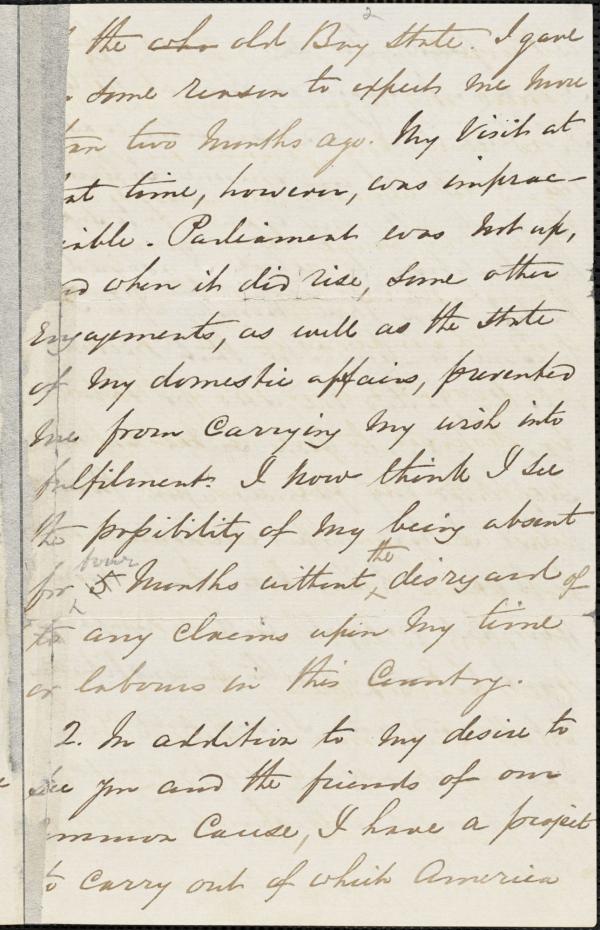 2
the old Bay State. I gave
some reason to expect me more
two months ago. My visit at
time, however, was imprac-
Parliament was not up,
when it did rise, some other
Engagements, as well as the state
of my domestic affairs, prevented
me from carrying my wish into
fulfilment. I now think I see
the possibility of my being absent
four
the
for months without disregard of
to any claims upon my time
or labours in this Country.
2. In addition to my desire to
see you and the friends of our
Common Cause, I have a project
to carry out of which America